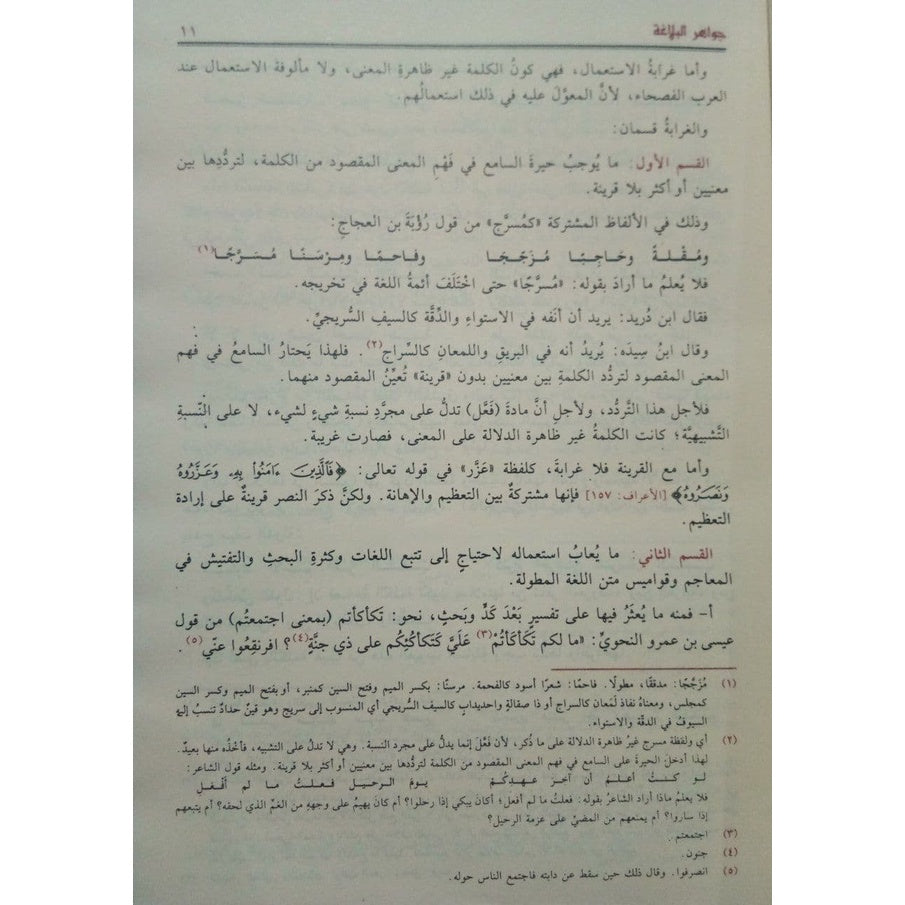 جواهر البلاغة
١١
وأما غرابةُ الاستعمال، فهي كونُ الكلمة غير ظاهرةِ المعنى، ولا مألوفة الاستعمال عند
العرب الفصحاء، لأنَّ المعوَّلَ عليه في ذلك استعمالُهم.
والغرابةُ قسمان:
القسم الأول: ما يُوجبُ حيرةَ السامع في فَهْمِ المعنى المقصود من الكلمة، لتردُّدِها بين
معنيين أو أكثر بلا قرينة.
وذلك في الألفاظ المشتركة «كمُسرَّج» من قول رُؤْبَةَ بن العجاج:
ومُقْلةً وحَاجِبًا مُزَجّجَا وفاحمًا ومِرْسَنًا مُسَرَّجَا(١)
فلا يُعلمُ ما أرادَ بقوله: «مُسرَّجًا» حتى اخْتَلَفَ أئمةُ اللغة في تخريجه.
فقال ابن دُريد: يريد أن أنفه في الاستواءِ والدِّقَّة كالسيفِ السُّريجيِّ.
وقال ابنُ سِيدَه: يُريدُ أنه في البريقِ واللمعانِ كالسِّراج(٢). فلهذا يَحتارُ السامعُ في فهم
المعنى المقصود لتردُّد الكلمةِ بين معنيين بدون «قرينة» تُعيِّنُ المقصود منهما.
فلأجلِ هذا التَّردُّد، ولأجلِ أنَّ مادةَ (فَعَّل) تدلُّ على مجرَّدِ نسبةِ شيءٍ لشيء، لا على النِّسبةِ
التَّشبيهيَّة؛ كانت الكلمةُ غير ظاهرة الدلالة على المعنى، فصارت غريبة.
وأما مع القرينة فلا غرابةَ، كلفظة «عَزَّر» في قوله تعالى: ﴿فَٱلَّذِينَ ءَامَنُوا۟ بِهِۦ وَعَزَّرُوهُ
وَنَصَرُوهُ﴾ [الأعراف: ١٥٧] فإنها مشتركةٌ بين التعظيم والإهانة. ولكنَّ ذكرَ النصر قرينةٌ على إرادة
التعظيم.
القسم الثاني: ما يُعابُ استعماله لاحتياجٍ إلى تتبع اللغات وكثرةِ البحثِ والتفتيش في
المعاجم وقواميس متن اللغة المطولة.
أ- فمنه ما يُعثَرُ فيها على تفسيرٍ بَعْدَ كَدٍّ وبَحثٍ، نحو: تَكأكأتم (بمعنى اجتمعتُم) من قول
عيسى بن عمرو النحويِّ: «ما لكم تَكَأكَأتُمْ(٣) عَلَيَّ كَتَكَأكُئِكُم على ذي جِنَّةٍ(٤)؟ افرنقِعُوا عنّي(٥).
(١) مُزَجَّجًا: مدققًا، مطولًا. فاحمًا: شعرًا أسود كالفحمة. مرسنًا: بكسر الميم وفتح السين كمنبر، أو بفتح الميم وكسر السين
كمجلس، ومعناهُ نفاذ لمَعان كالسراج أو ذا صقالةٍ واحديداب كالسيف السُّريجي أي المنسوب إلى سريج وهو قينٌ حدادٌ تنسبُ إليه
السيوفُ في الدقَّة والاستواء.
(٢) أي ولفظة مسرج غيرُ ظاهرة الدلالة على ما ذُكر، لأن فَعَّلَ إنما يدلُّ على مجرد النسبة. وهي لا تدلُّ على التشبيه، فأخْذُه منها بعيدٌ.
لهذا أدخلَ الحيرةَ على السامع في فهم المعنى المقصود من الكلمة لتردُّدها بين معنيين أو أكثر بلا قرينة. ومثله قول الشاعر:
لو كنتُ أعلمُ أن آخرَ عهدِكُمْ يومَ الرحيلِ فعلتُ ما لم أفْعَلِ
فلا يعلمُ ماذا أراد الشاعرُ بقوله: فعلتُ ما لم أفعل؛ أكانَ يبكي إذا رحلوا؟ أم كانَ يهيمُ على وجههِ من الغمِّ الذي لحقه؟ أم يتبعهم
إذا ساروا؟ أم يمنعهم من المضيِّ على عزمة الرحيل؟
(٣) اجتمعتم.
(٤) جنون.
(٥) انصرفوا. وقال ذلك حين سقط عن دابته فاجتمع الناس حوله.